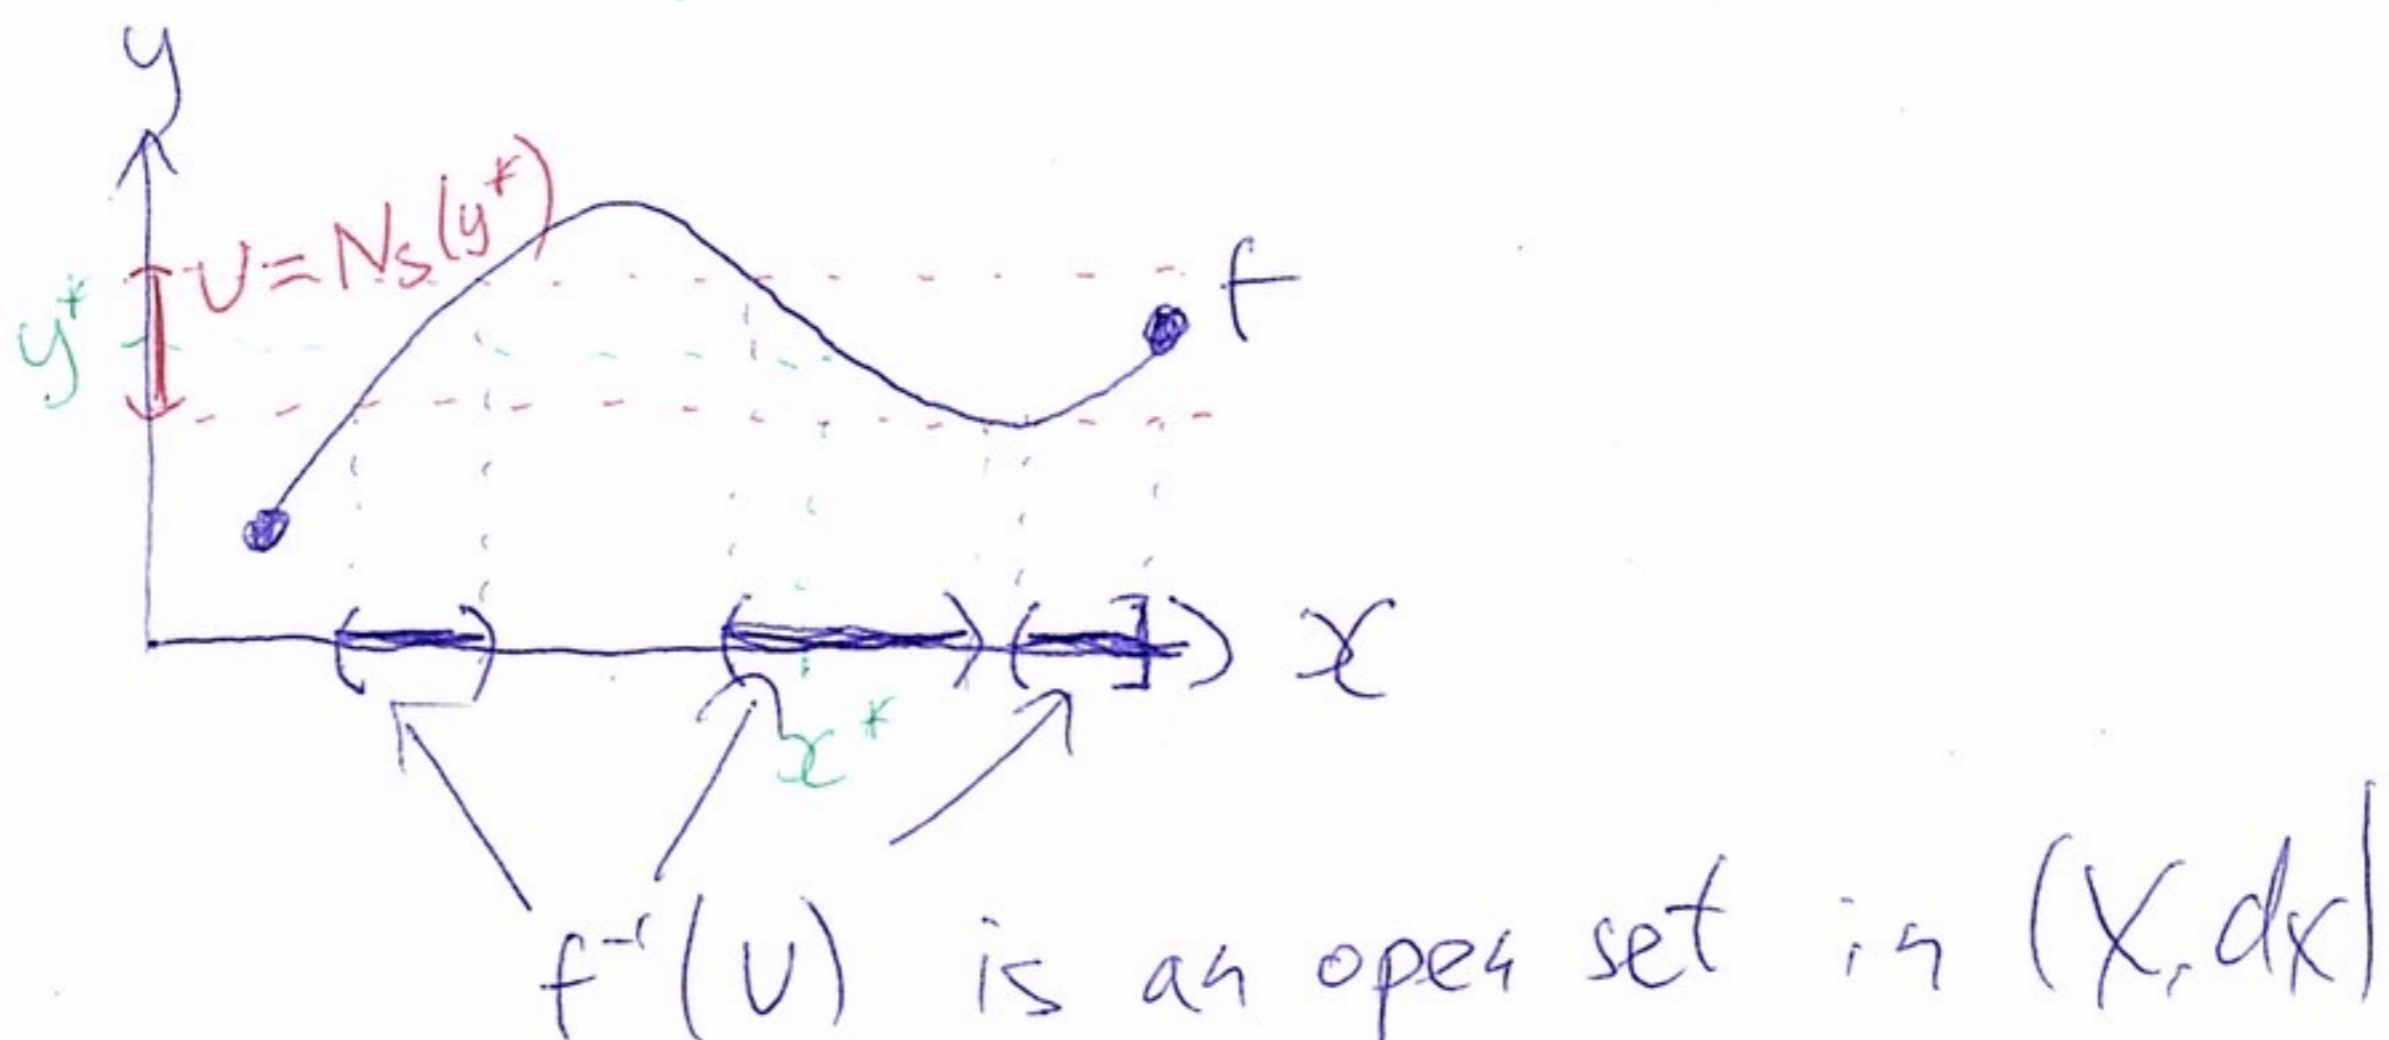 y
U = Nδ(y*)
f
y*
( ) ( ) ( ] ) x
x*
f⁻¹(U) is an open set in (X, dx)